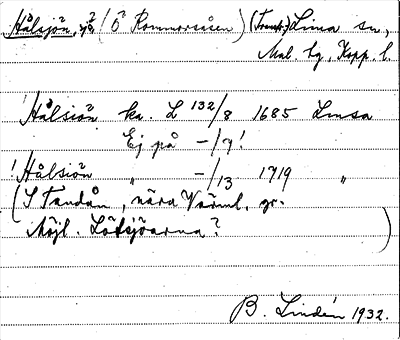 Hålsjön, (Ö Rommarsåsen) (Transtr.) Lima sn,
Mal. tg, Kopp. l.
! Hålsiön ka. L 132/8 1685 Limsa
Ej på -/7!
! Hålsiön " -/13 1719 "
(S Tandån, nära Värml. gr.
Möjl. Lötsjöarna?)
B. Lindén 1932.